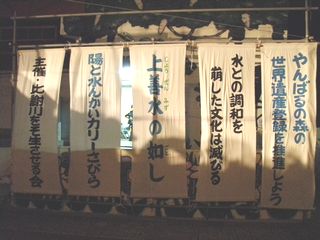 やんばるの森の
世界遺産登録を推進しよう
水との調和を
崩した文化は滅びる
上善水の如し
陽と水んかいカリーさびら
主催・比謝川をそ生させる会